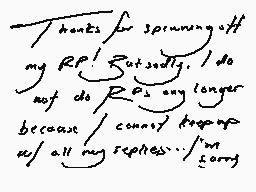 Thanks for spawning off
my RP! But sadly, I do
not do RPs any longer
because I cannot keep up
w/ all my replies... I'm
sorry